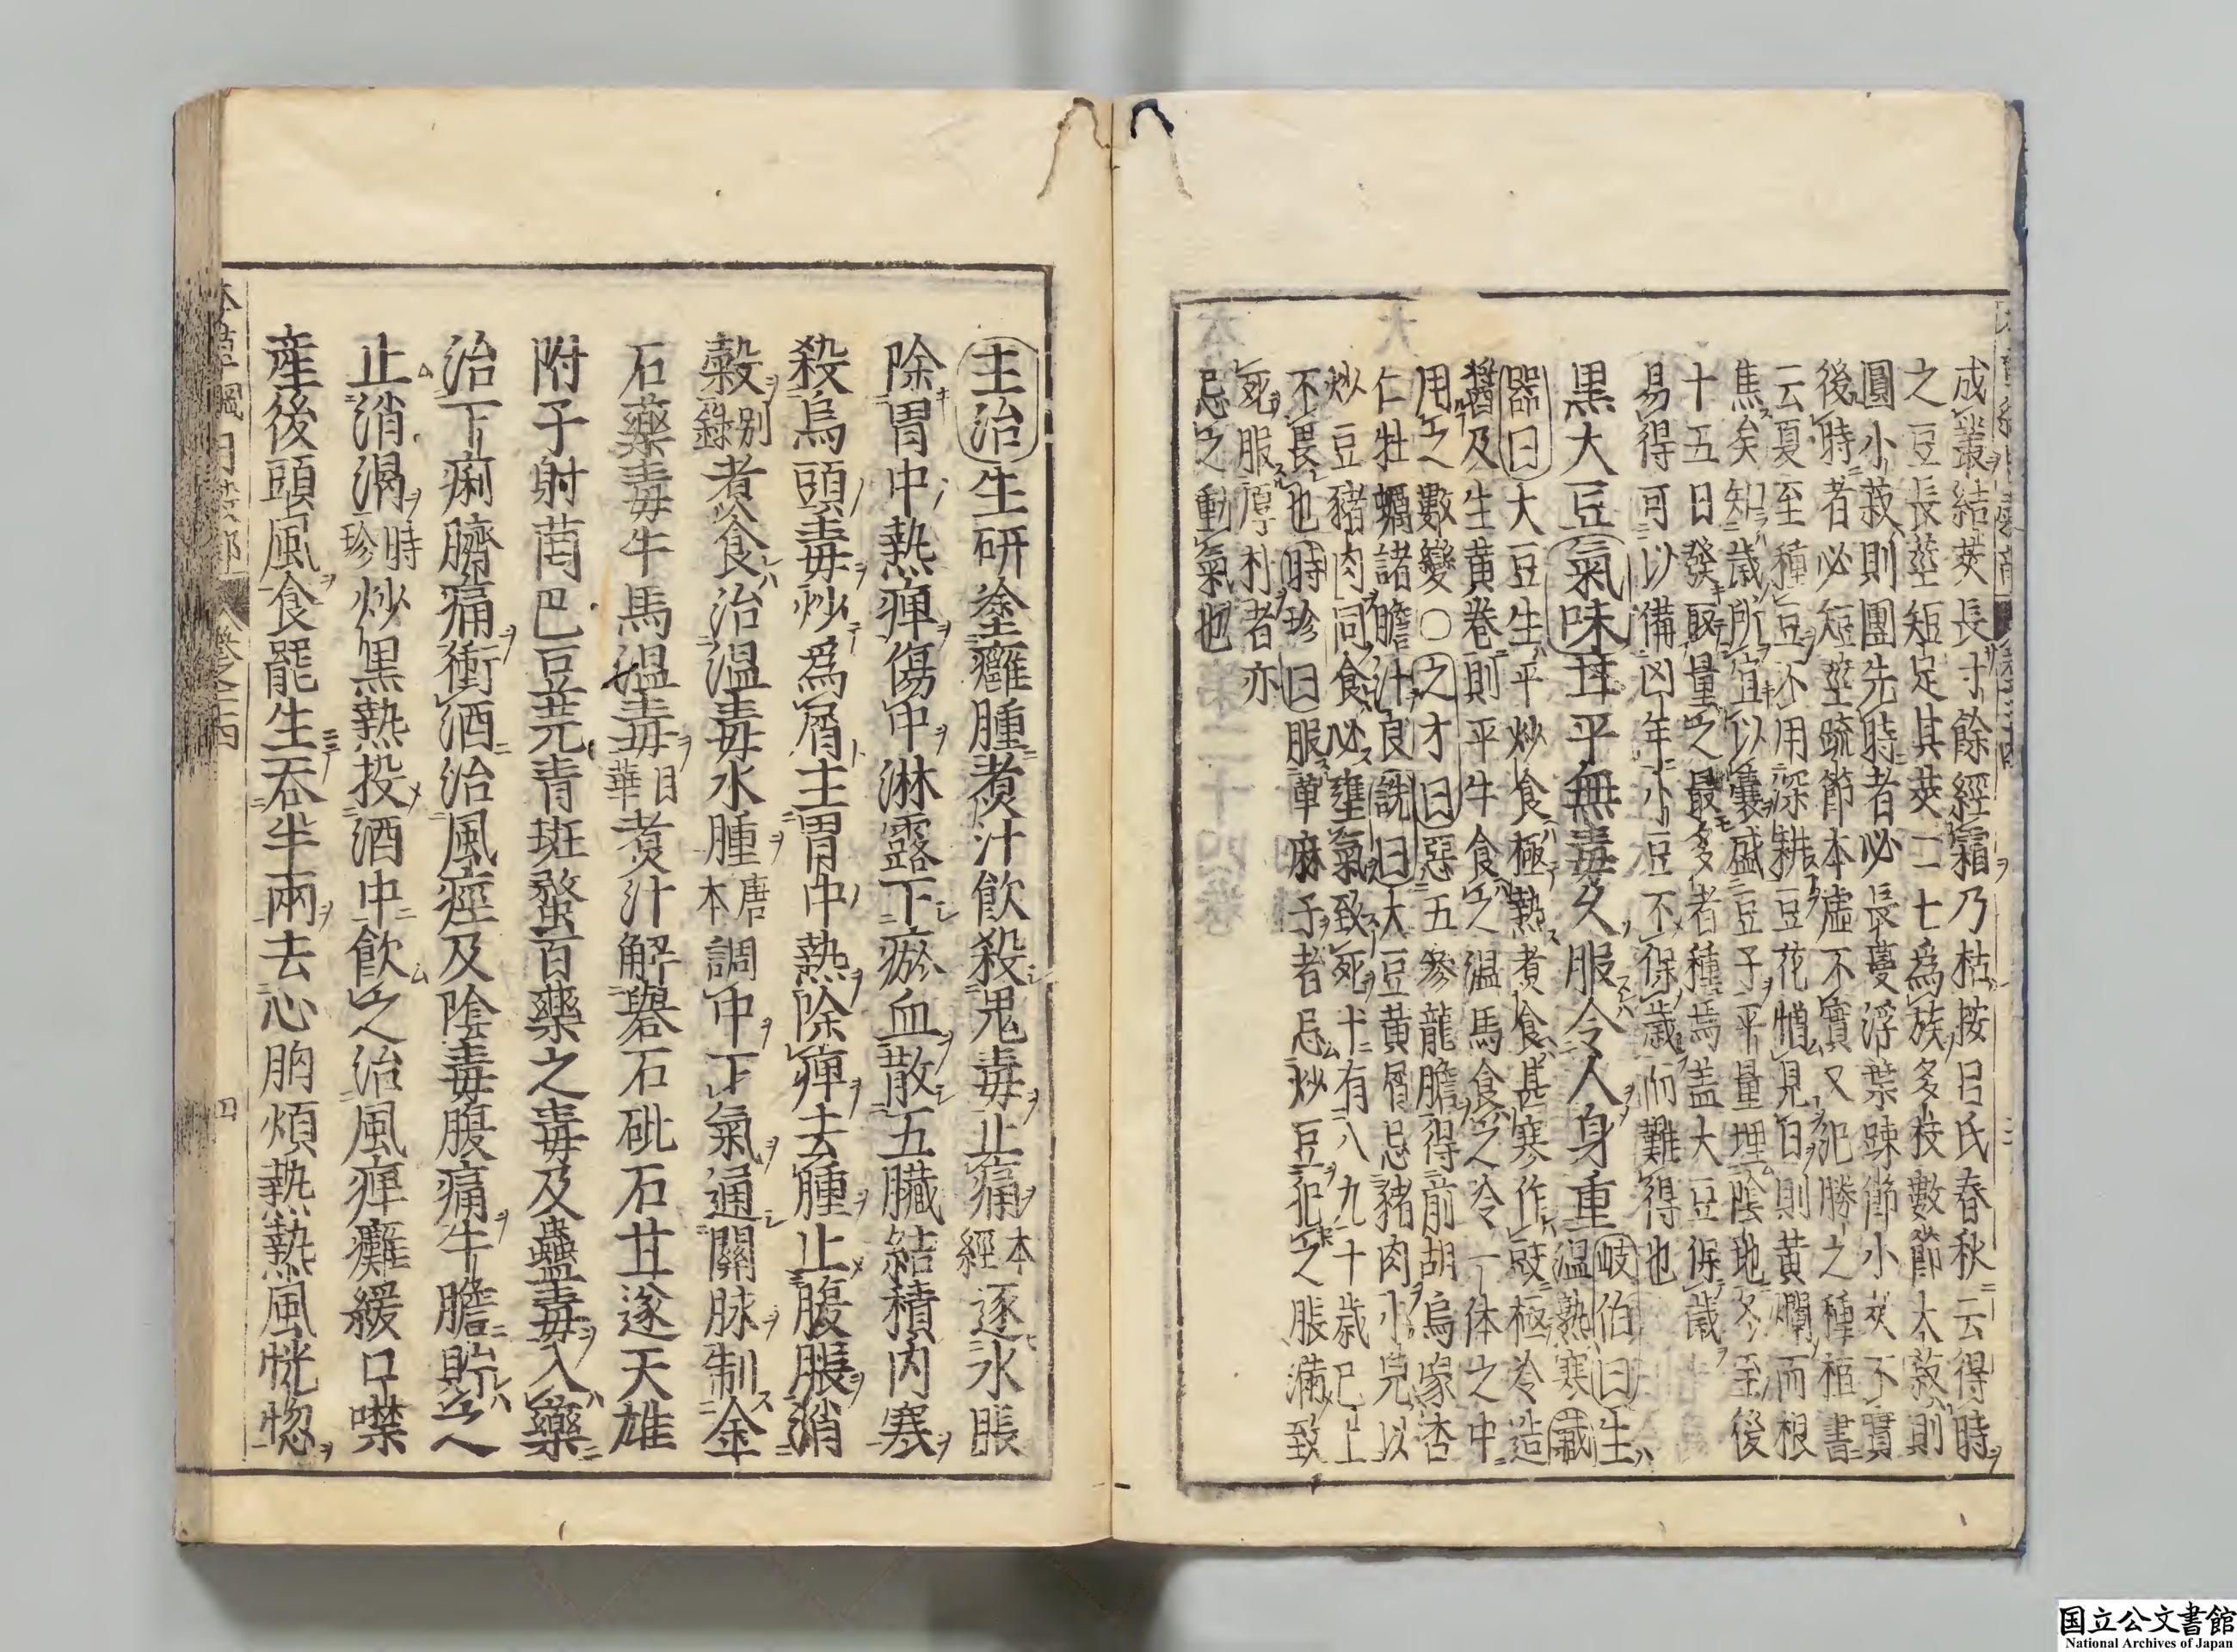 成叢結莢長寸餘經霜乃枯按呂氏春秋云得時
之豆長莖短足其莢二七爲族多枝數節大菽則
圓小菽則團先時者必長蔓浮葉疎節小莢不實
後時者必短莖疏節本虛不實又氾勝之種植書
云夏至種豆不用深耕豆花憎見日則黃爛而根
焦矣知歲所宜以囊盛豆子平量埋陰地冬至後
十五日發取量之最多者種焉盖大豆保歲
易得可以備凶年小豆不保歲而難得也
黒大豆氣味甘平無毒久服令人身重岐伯曰生温熟寒藏
器曰大豆生平炒食極熱煮食甚寒作豉極冷造
醬及生黃卷則平牛食之温馬食之冷一体之中
用之數變〇之才曰惡五參龍膽得前胡烏喙杏
仁牡蠣諸膽汁良詵曰大豆黃屑忌豬肉小兒以
炒豆豬肉同食必壅氣致死十有八九十歲已上
不畏也時珍曰服蓖麻子者忌炒豆犯之脹滿致
死服厚朴者亦
忌之動氣也
主治生研塗癰腫煮汁飲殺鬼毒止痛本經逐水脹
除胃中熱痺傷中淋露下瘀血散五臟結積内寒
殺烏頭毒炒爲屑主胃中熱除痺去腫止腹脹消
穀别錄煮食治温毒水腫唐本調中下氣通關脉制金
石藥毒牛馬温毒日華煮汁解礜石砒石甘遂天雄
附子射䒷巴豆芫青斑蝥百藥之毒及蠱毒入藥
治下痢臍痛衝酒治風痙及陰毒腹痛牛膽貯之
止消渴時珍炒黒熱投酒中飲之治風痺癱緩口噤
産後頭風食罷生吞半兩去心胸煩熱熱風恍惚
本草綱目穀部 卷之二十四 四
国立公文書館
National Archives of Japan